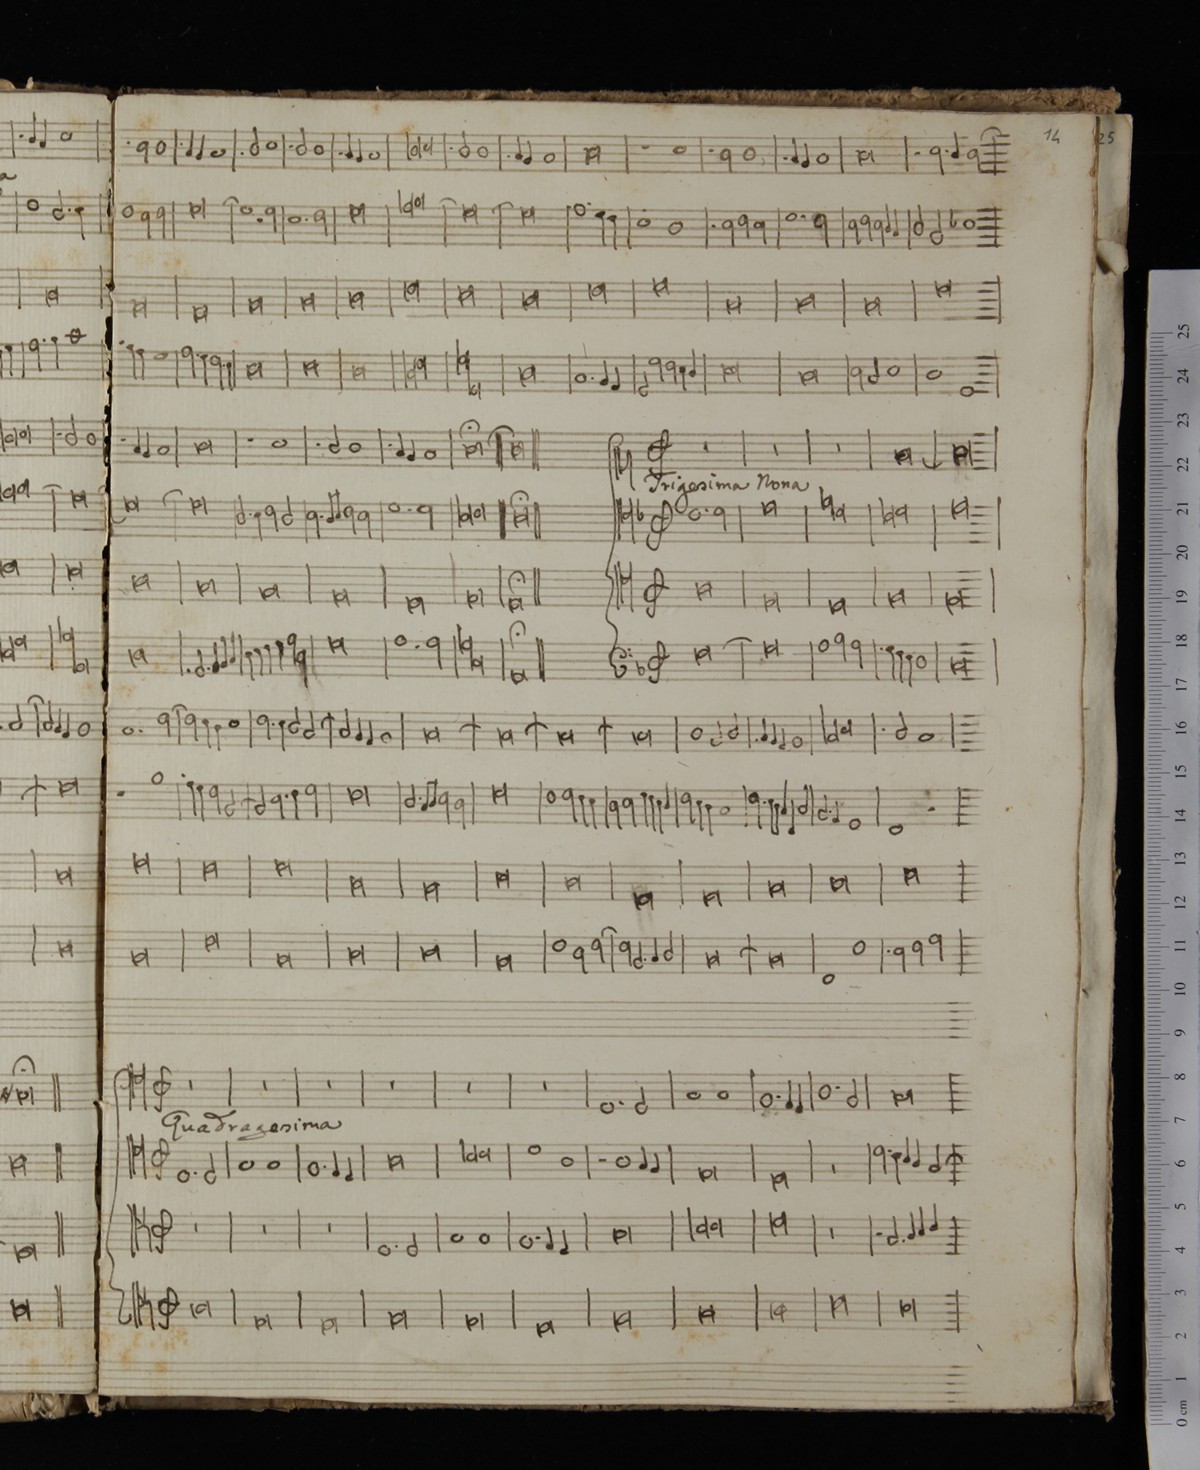 14
25
Trigesima Nona
Quadragesima
25
24
23
22
21
20
19
18
17
16
15
14
13
12
11
10
9
8
7
6
5
4
3
2
1
0 cm